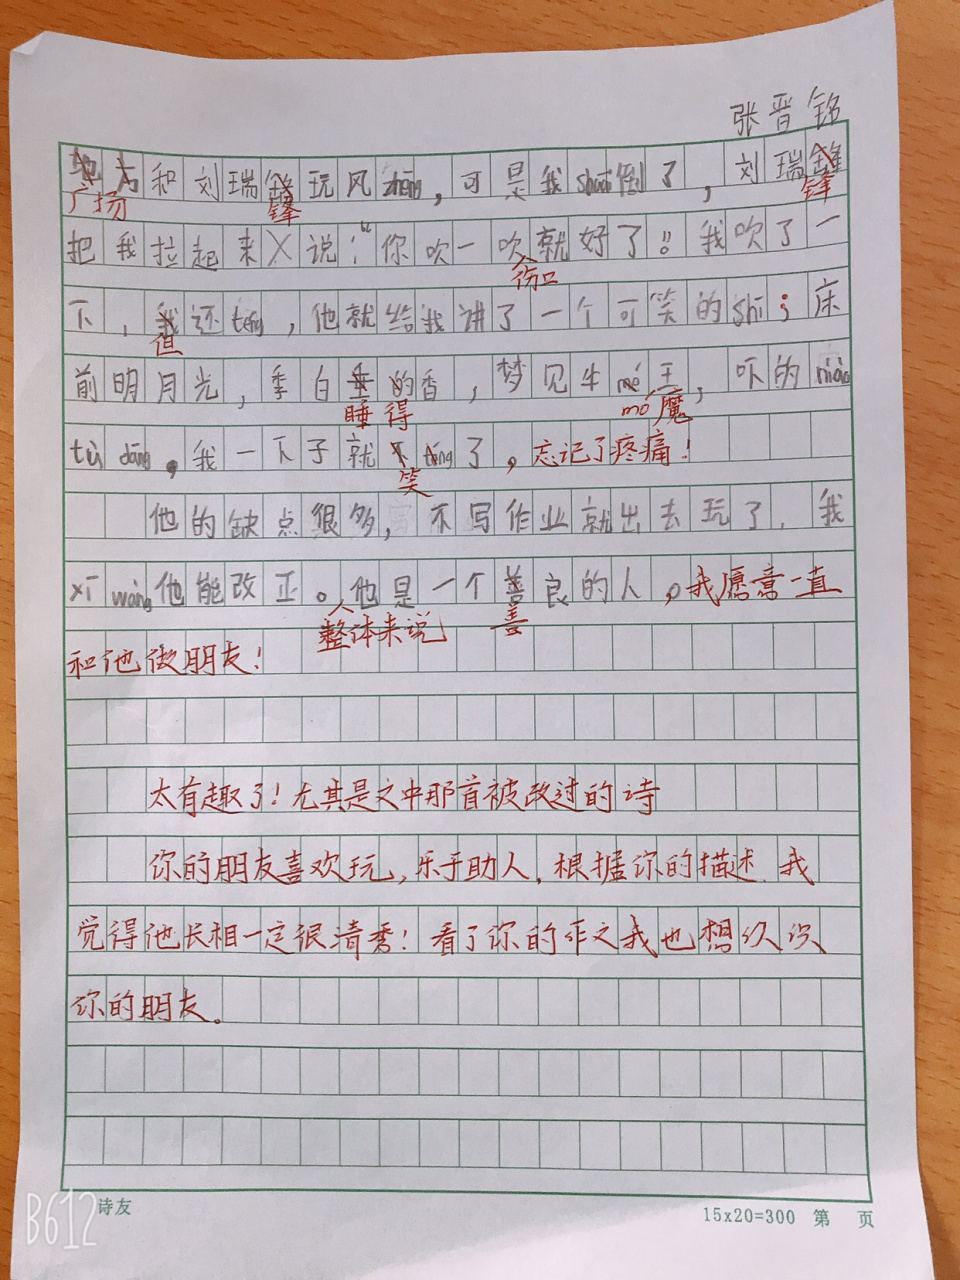 张晋铭
地方和刘瑞锋玩风zhēng,可是我shuāi倒了,刘瑞锋
广扬 锋 锋
把我拉起来说:“你吹一吹就好了!!我吹了一
伤口
下,我还téng,他就给我讲了一个可笑的shī:床
但
前明月光,季白垂的香,梦见牛mé王,吓的niào
睡 得 mó 魔
tù dāng。我一下子就不téng了,忘记了疼痛!
笑
他的缺点很多,不写作业就出去玩了.我
xī wàng他能改正。他是一个善良的人,我愿意一直
整体来说 善
和他做朋友!
太有趣了!尤其是文中那首被改过的诗
你的朋友喜欢玩,乐于助人,根据你的描述.我
觉得他长相一定很清秀!看了你的作文我也想认识
你的朋友。
诗友
15x20=300 第 页
B612